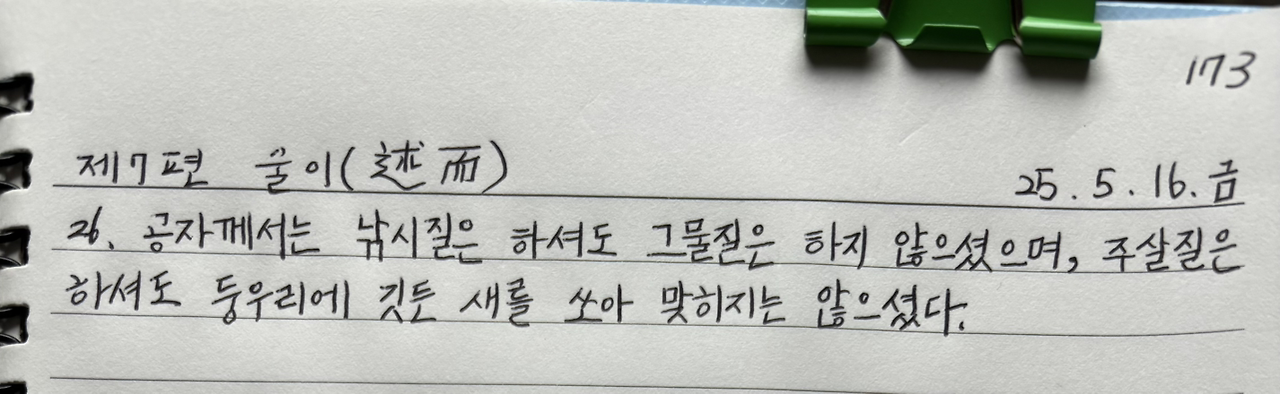 173
제7편 술이(述而)
25. 5. 16. 금
26. 공자께서는 낚시질은 하셔도 그물질은 하지 않으셨으며, 주살질은
하셔도 둥우리에 깃든 새를 쏘아 맞히지는 않으셨다.